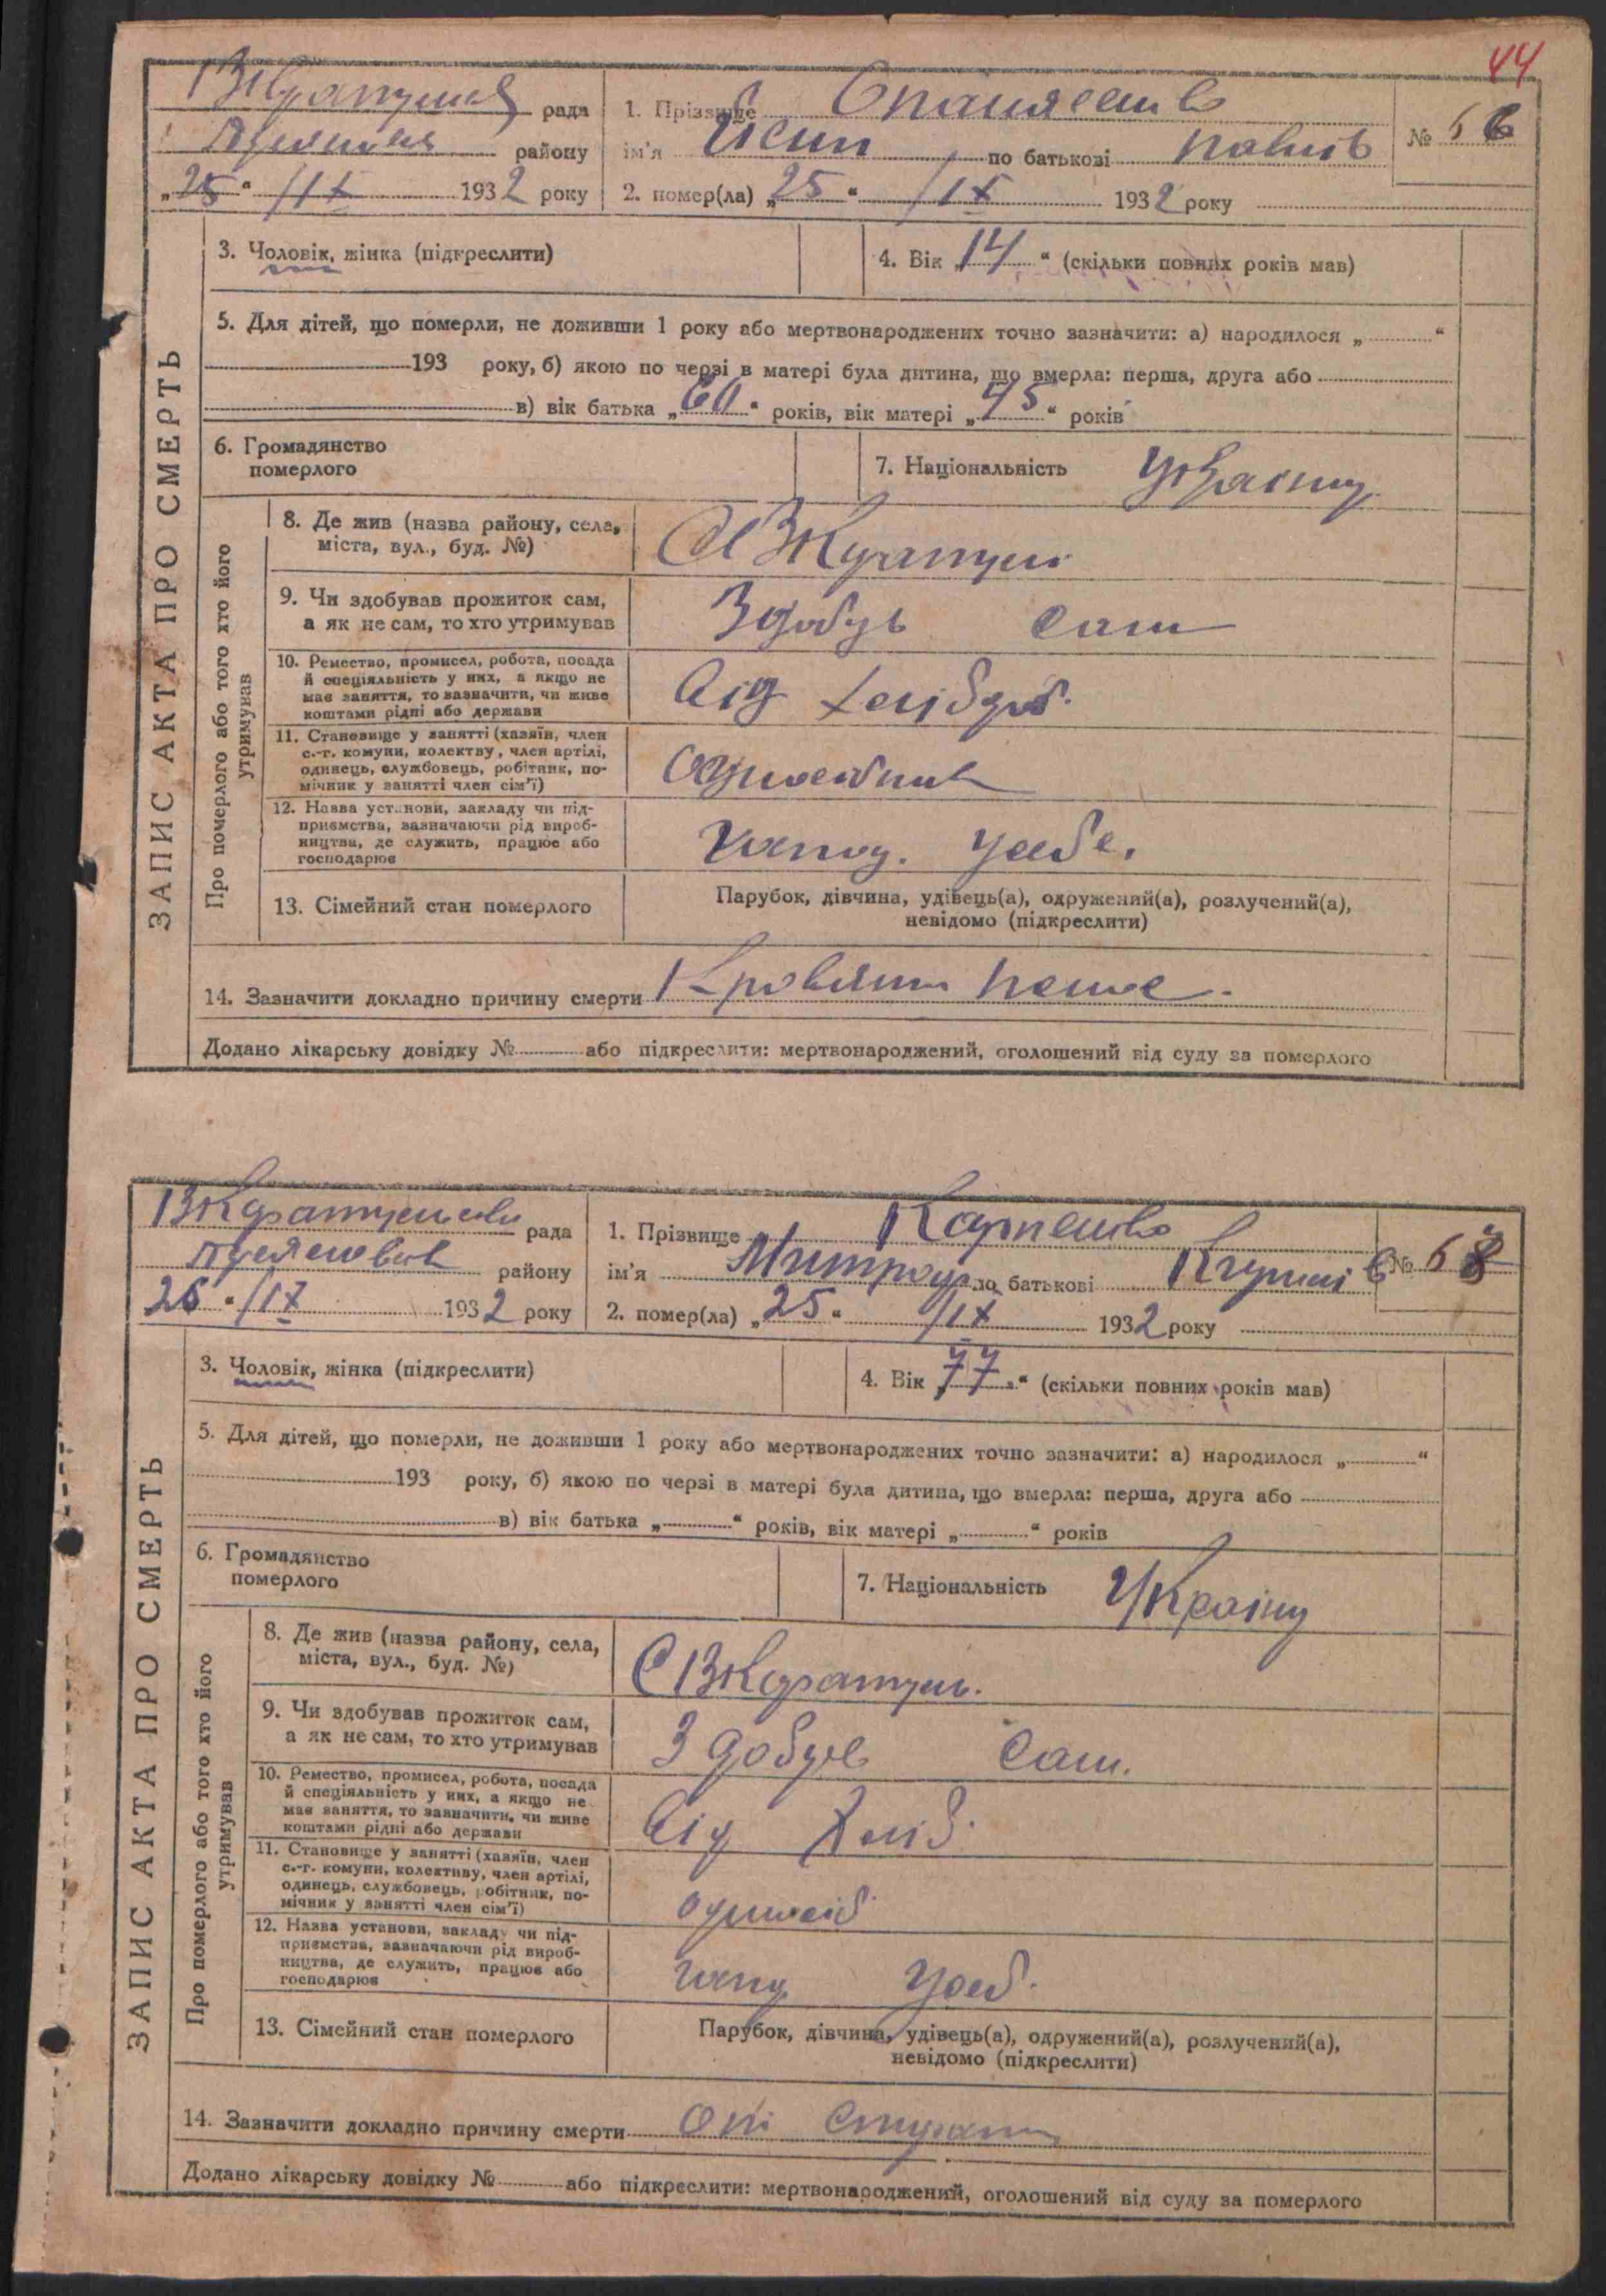 44
рада
1. Прізвище
№ 66
району
ім'я по батькові
„25“ /IX 1932 року
2. помер(ла) „25“ /IX 1932 року
ЗАПИС АКТА ПРО СМЕРТЬ
3. Чоловік, жінка (підкреслити)
4. Вік „14“ (скільки повних років мав)
5. Для дітей, що померли, не доживши 1 року або мертвонароджених точно зазначити: а) народилося „ “
193 року, б) якою по черзі в матері була дитина, що вмерла: перша, друга або
в) вік батька „60“ років, вік матері „45“ років
6. Громадянство
померлого
7. Національність Україн
Про померлого або того хто його
утримував
8. Де жив (назва району, села,
міста, вул., буд. №)
9. Чи здобував прожиток сам,
а як не сам, то хто утримував
Здобув сам
10. Ремество, промисел, робота, посада
й спеціяльність у них, а якщо не
має заняття, то зазначити, чи живе
коштами рідні або держави
11. Становище у занятті (хазяїн, член
с.-г. комуни, колективу, член артілі,
одинець, службовець, робітник, по-
мічник у занятті член сім'ї)
12. Назва установи, закладу чи під-
приємства, зазначаючи рід вироб-
ництва, де служить, працює або
господарює
13. Сімейний стан померлого
Парубок, дівчина, удівець(а), одружений(а), розлучений(а),
невідомо (підкреслити)
14. Зазначити докладно причину смерти
Додано лікарську довідку № або підкреслити: мертвонароджений, оголошений від суду за померлого
рада
1. Прізвище
району
ім'я по батькові
№ 68
25 “ /IX 1932 року
2. помер(ла) „25“ /IX 1932 року
ЗАПИС АКТА ПРО СМЕРТЬ
3. Чоловік, жінка (підкреслити)
4. Вік „77“ (скільки повних років мав)
5. Для дітей, що померли, не доживши 1 року або мертвонароджених точно зазначити: а) народилося „ “
193 року, б) якою по черзі в матері була дитина, що вмерла: перша, друга або
в) вік батька „ “ років, вік матері „ “ років
6. Громадянство
померлого
7. Національність Україн
Про померлого або того хто його
утримував
8. Де жив (назва району, села,
міста, вул., буд. №)
9. Чи здобував прожиток сам,
а як не сам, то хто утримував
Здобув сам.
10. Ремество, промисел, робота, посада
й спеціяльність у них, а якщо не
має заняття, то зазначити, чи живе
коштами рідні або держави
11. Становище у занятті (хазяїн, член
с.-г. комуни, колективу, член артілі,
одинець, службовець, робітник, по-
мічник у занятті член сім'ї)
12. Назва установи, закладу чи під-
приємства, зазначаючи рід вироб-
ництва, де служить, працює або
господарює
13. Сімейний стан померлого
Парубок, дівчина, удівець(а), одружений(а), розлучений(а),
невідомо (підкреслити)
14. Зазначити докладно причину смерти
Додано лікарську довідку № або підкреслити: мертвонароджений, оголошений від суду за померлого